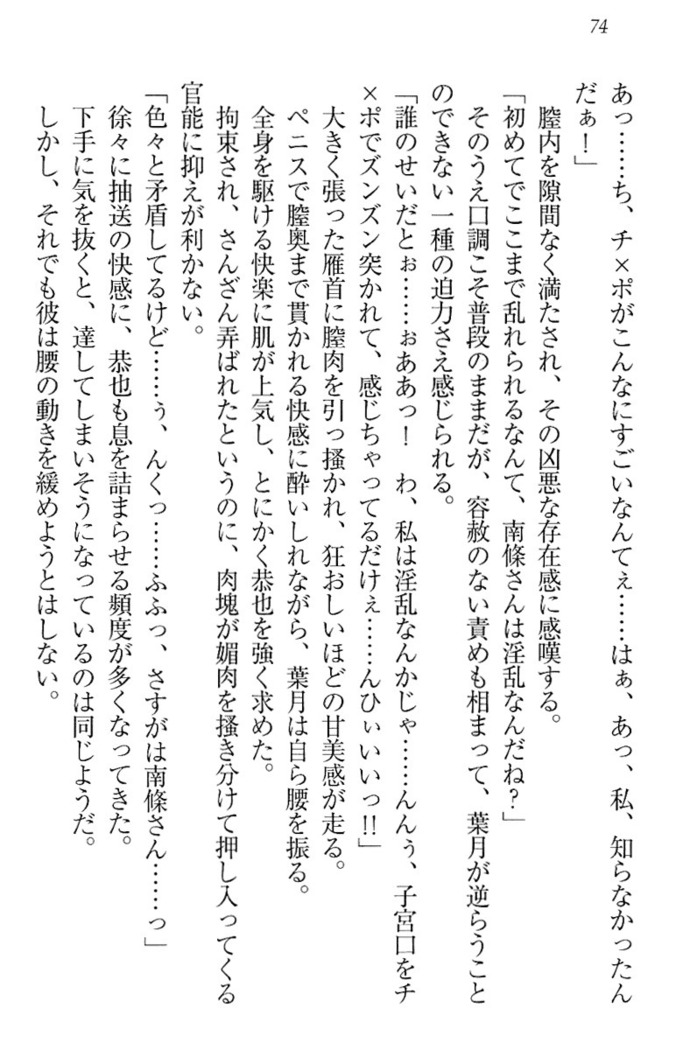 74
あっ……ち、チ×ポがこんなにすごいなんてぇ……はぁ、あっ、私、知らなかったん
だぁ！」
　膣内を隙間なく満たされ、その凶悪な存在感に感嘆する。
「初めてでここまで乱れられるなんて、南條さんは淫乱なんだね？」
　そのうえ口調こそ普段のままだが、容赦のない責めも相まって、葉月が逆らうこと
のできない一種の迫力さえ感じられる。
「誰のせいだとぉ……ぉああっ！　わ、私は淫乱なんかじゃ……んんぅ、子宮口をチ
×ポでズンズン突かれて、感じちゃってるだけぇ……んひぃいいっ!!」
　大きく張った雁首に膣肉を引っ掻かれ、狂おしいほどの甘美感が走る。
　ペニスで膣奥まで貫かれる快感に酔いしれながら、葉月は自ら腰を振る。
　全身を駆ける快楽に肌が上気し、とにかく恭也を強く求めた。
　拘束され、さんざん弄ばれたというのに、肉塊が媚肉を掻き分けて押し入ってくる
官能に抑えが利かない。
「色々と矛盾してるけど……ぅ、んくっ……ふふっ、さすがは南條さん……っ」
　徐々に抽送の快感に、恭也も息を詰まらせる頻度が多くなってきた。
　下手に気を抜くと、達してしまいそうになっているのは同じようだ。
　しかし、それでも彼は腰の動きを緩めようとはしない。